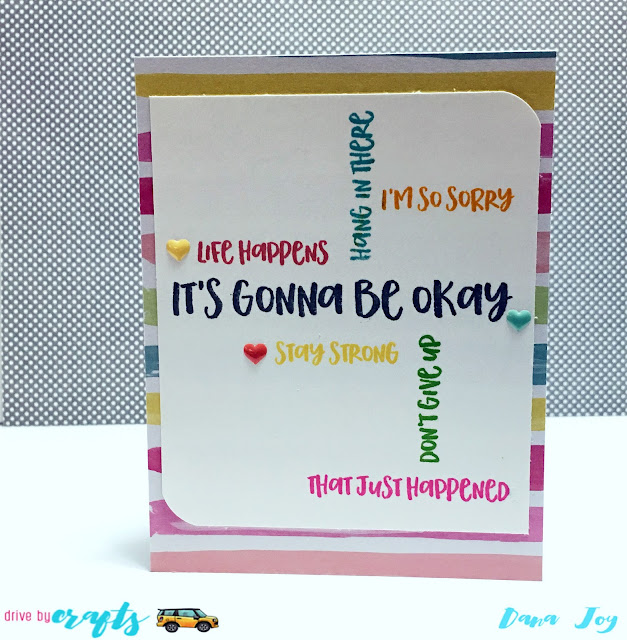 HANG IN THERE
I'M SO SORRY
LIFE HAPPENS
IT'S GONNA BE OKAY
STAY STRONG
DON'T GIVE UP
THAT JUST HAPPENED
drive by crafts
Dana Joy